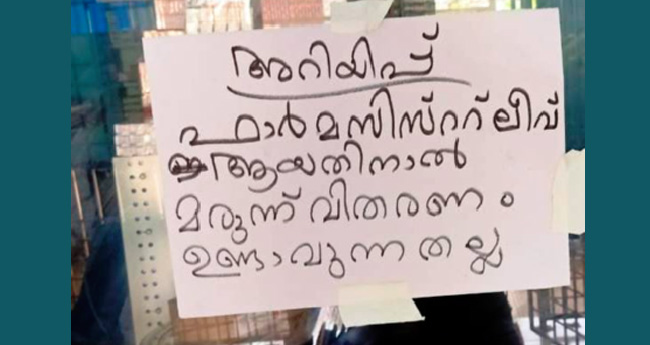 അറിയിപ്പ്
ഫാർമസിസ്ററ് ലീവ്
ആയതിനാൽ
മരുന്ന് വിതരണം
ഉണ്ടാവുന്നതല്ല